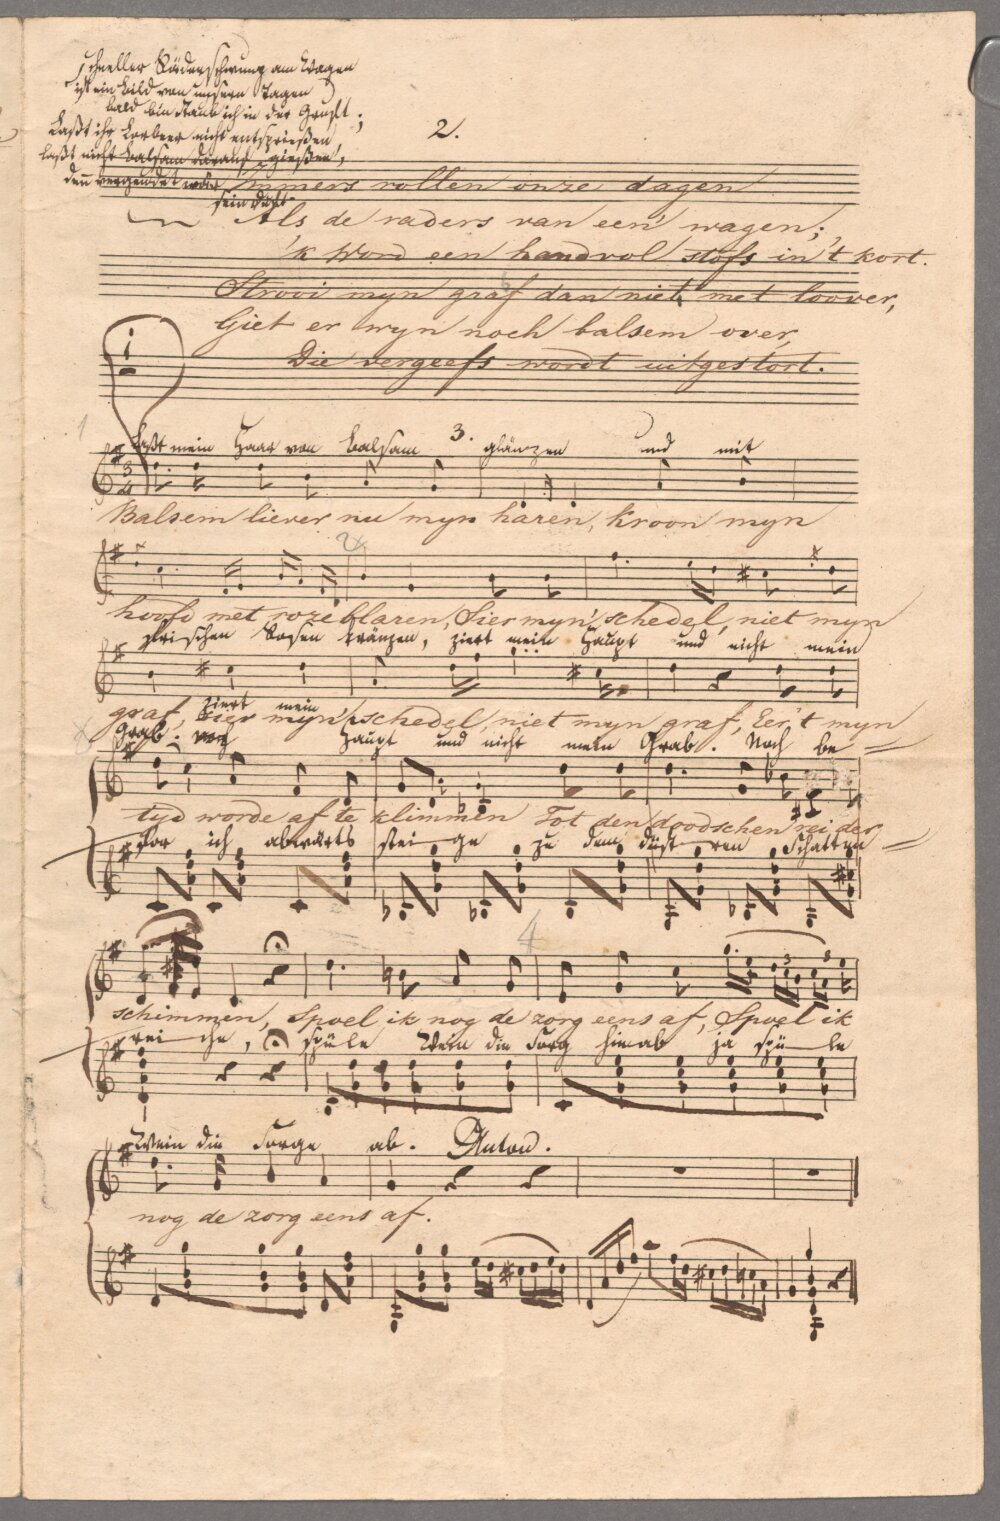 schneller Räderschwung am Wagen
ist ein Bild von unsern Tagen
bald bin Staub ich in der Gruft;
Laßt ihr Lorbeer nicht entsprießen,
laßt nicht Balsam darauf gießen,
denn vergeudet wär
sein Duft.
2.
Immers rollen onze dagen
Als de raders van een' wagen;
'k Word een handvol stofs in 't kort.
Strooi myn graf dan niet met loover,
Giet er wyn noch balsem over,
Die vergeefs wordt uitgestort.
1
3.
Laßt mein Haar von Balsam glänzen und mit
3/4
Balsem liever nu myn haren, Kroon myn
2
hoofd met rozeblaren, Sier myn' schedel, niet myn
frischen Rosen kränzen, ziert mein Haupt und nicht mein
graf, Sier myn' schedel, niet myn graf, Eer 't myn
ziert mein
Grab; Haupt und nicht mein Grab. Noch be
tyd worde af te klimmen Tot den doodschen rei der
vor ich abwärts steige zu dem düstren Schatten
4
schimmen, Spoel ik nog de zorg eens af, Spoel ik
reiche, spüle Wein die Sorg hinab ja spüle
Wein die Sorge ab. Anton.
nog de zorg eens af.